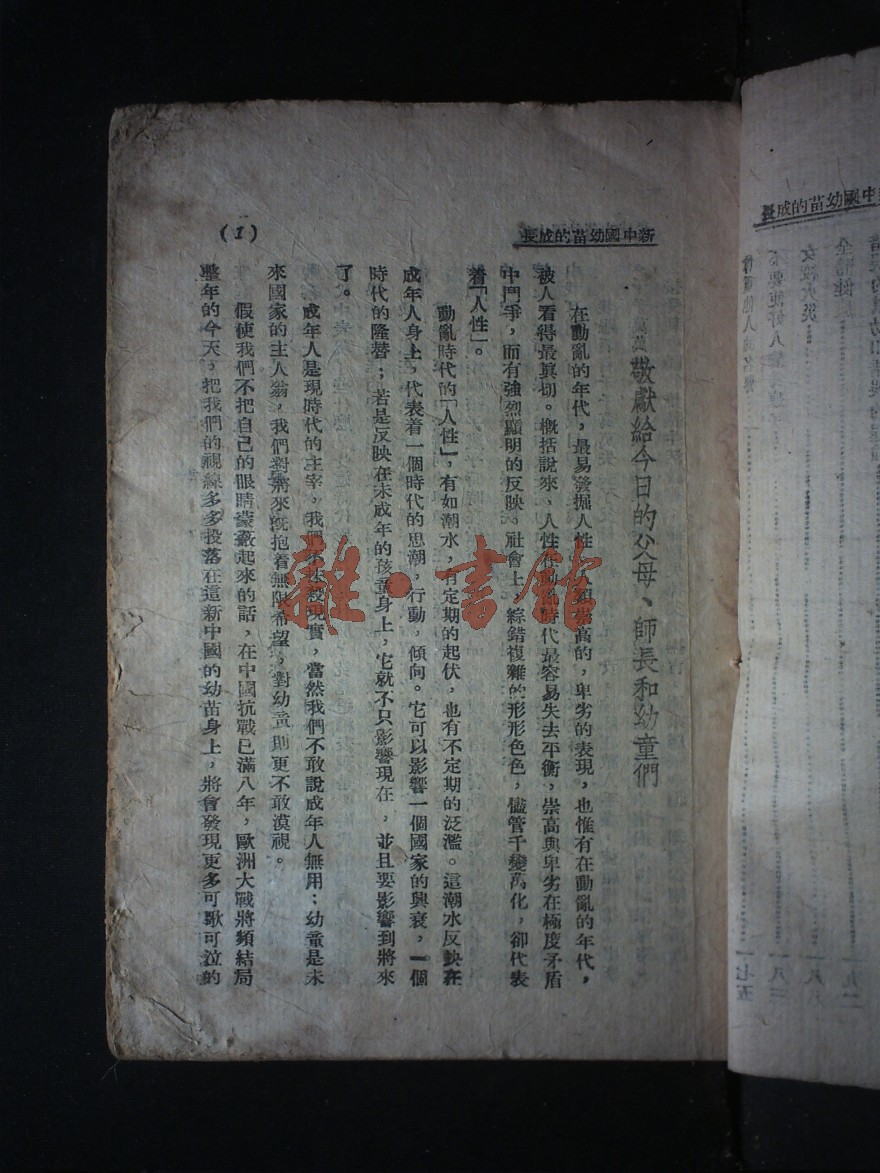 新中國幼苗的成長
(1)
敬獻給今日的父母、師長和幼童們
在動亂的年代,最易發掘人性崇高的,卑劣的表現,也惟有在動亂的年代,
被人看得最真切。概括說來、人性在動亂時代最容易失去平衡,崇高與卑劣在極度矛盾
中鬥爭,而有強烈顯明的反映。社會上,綜錯複雜的形形色色,儘管千變萬化,卻代表
着「人性」。
動亂時代的「人性」,有如潮水,有定期的起伏,也有不定期的泛濫。這潮水反映在
成年人身上,代表着一個時代的思潮,行動,傾向。它可以影響一個國家的興衰,一個
時代的隆替;若是反映在未成年的孩童身上,它就不只影響現在,並且要影響到將來
了。
成年人是現時代的主宰,我們不抹殺現實,當然我們不敢說成年人無用;幼童是未
來國家的主人翁,我們對將來旣抱着無限希望,對幼童則更不敢漠視。
假使我們不把自己的眼睛蒙蔽起來的話,在中國抗戰已滿八年,歐洲大戰將頻結局
整年的今天,把我們的視線多多投落在這新中國的幼苗身上,將會發現更多可歌可泣的
雜·書館
中國幼苗的成長
女校火災
一七五
一八二